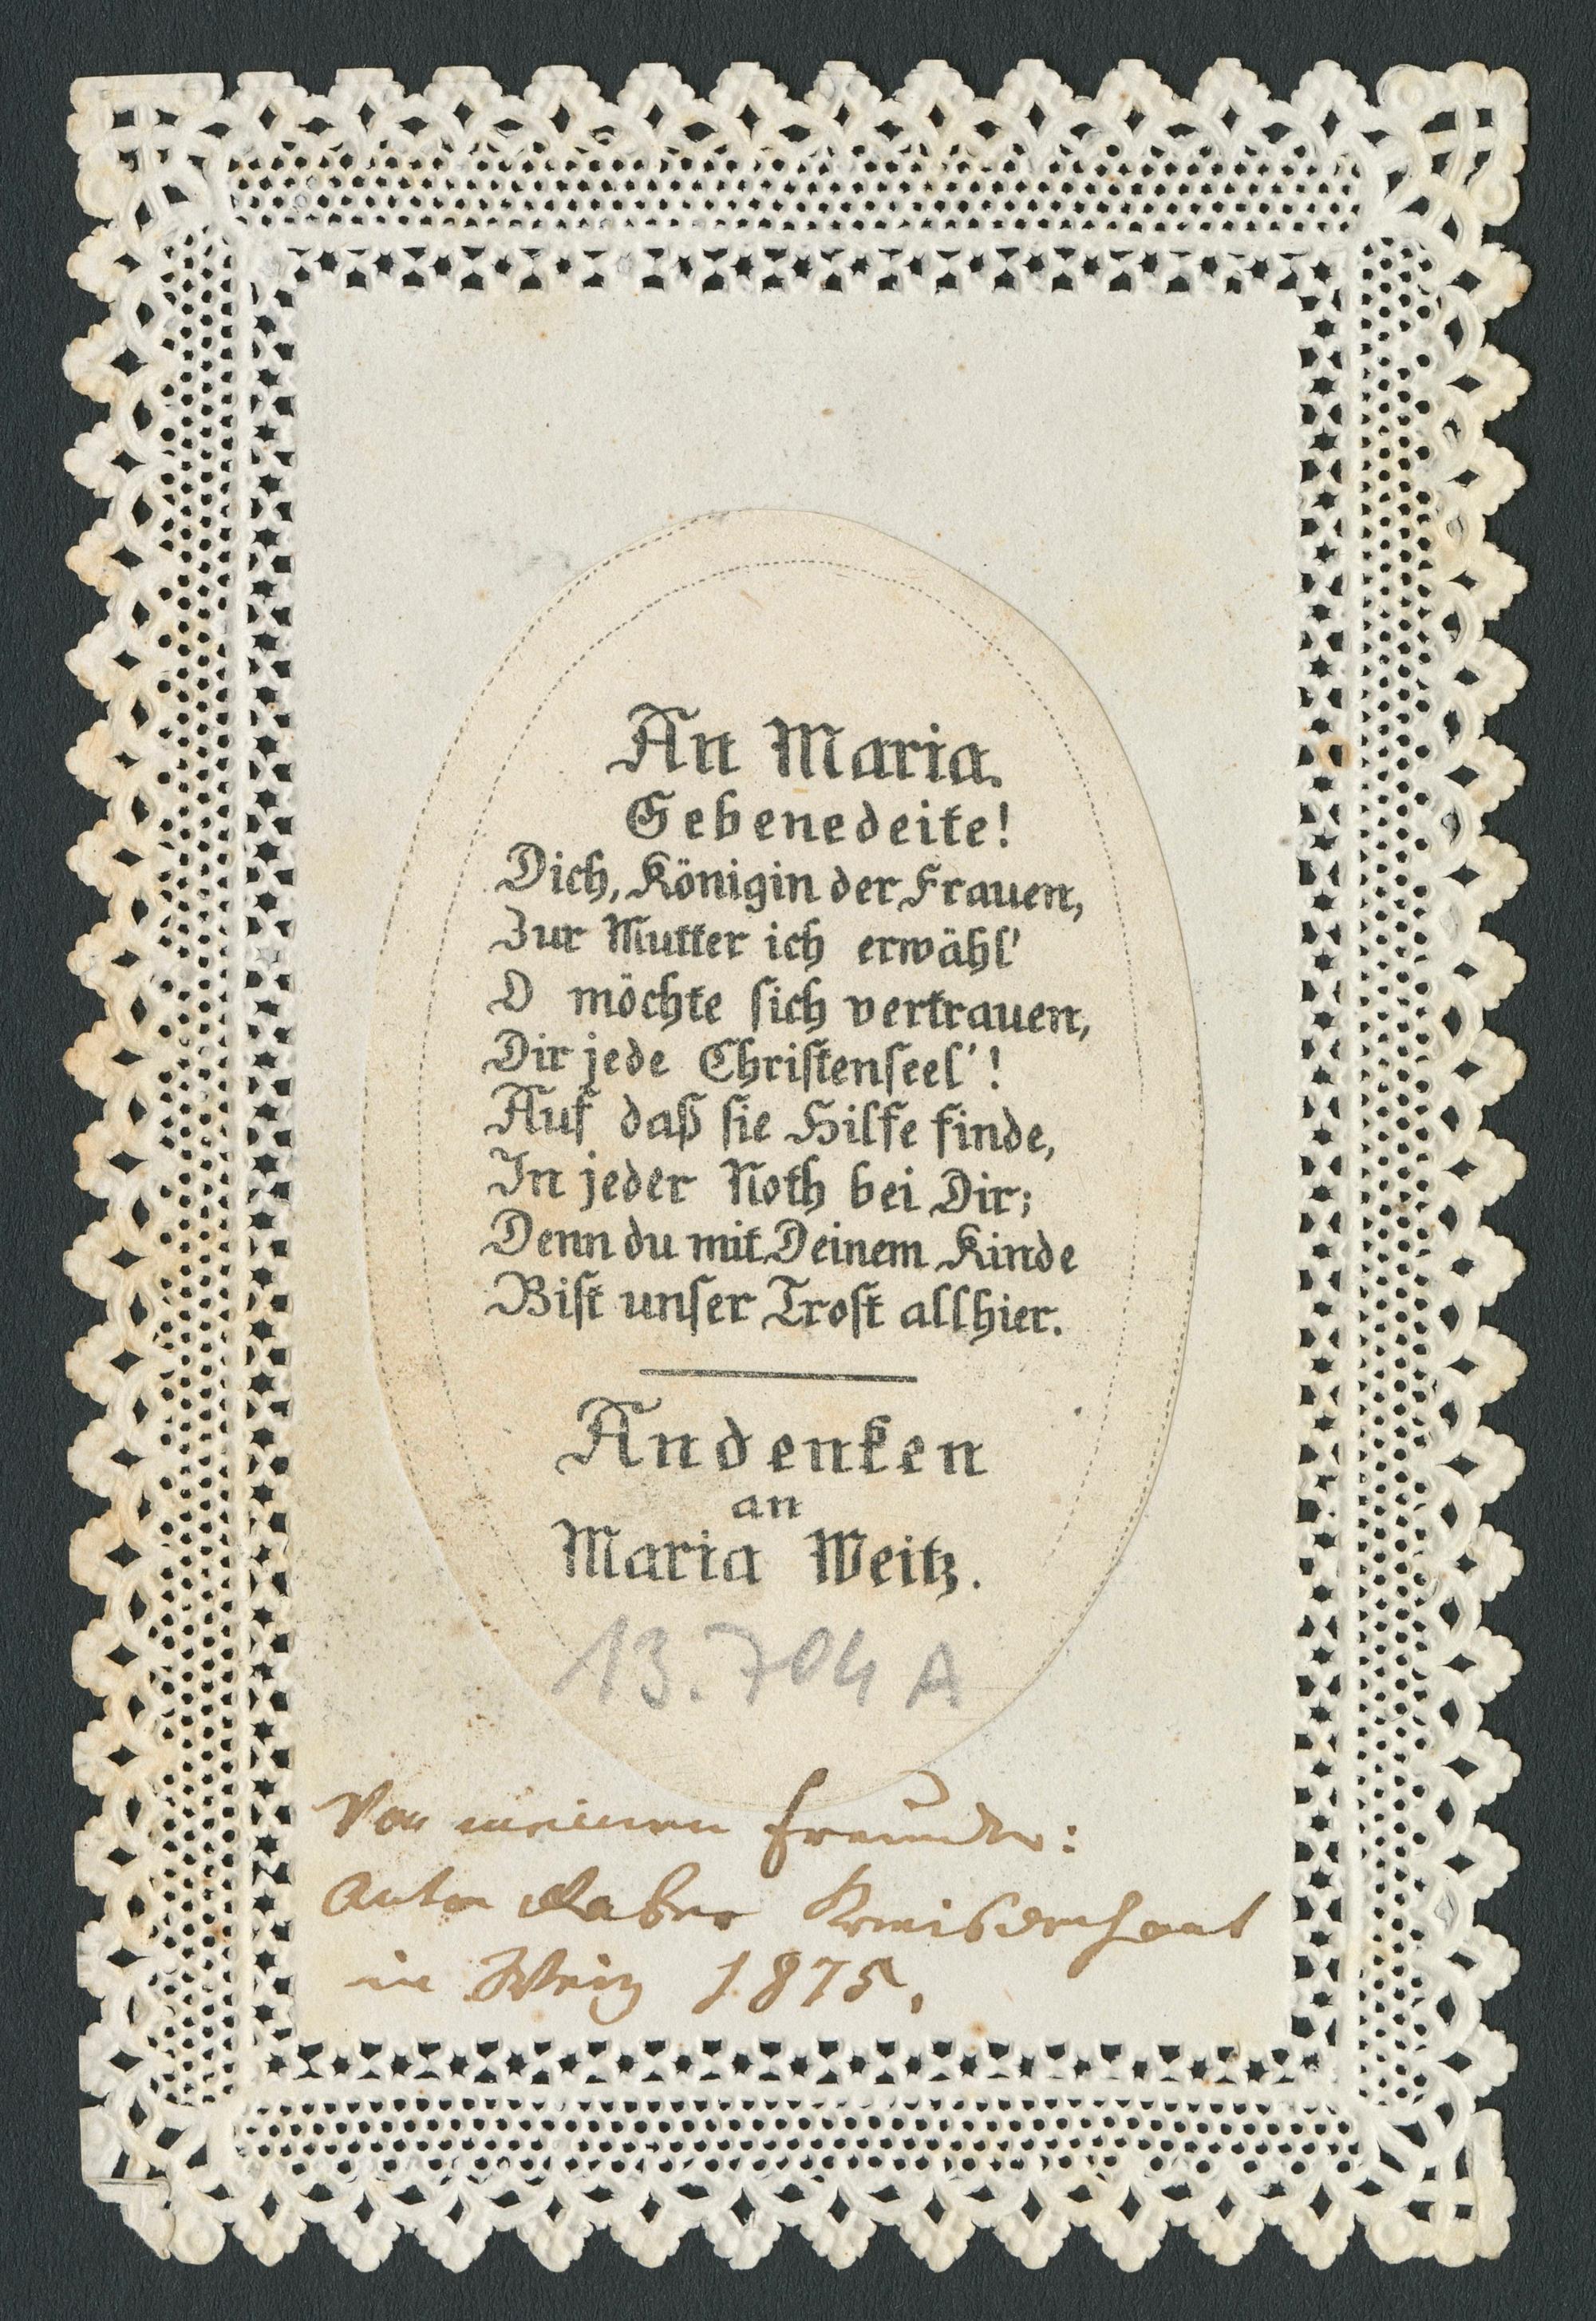 An Maria.
Gebenedeite!
Dich, Königin der Frauen,
Zur Mutter ich erwähl'
O möchte sich vertrauen,
Dir jede Christenseel'!
Auf daß sie Hilfe finde,
In jeder Noth bei Dir;
Denn du mit Deinem Kinde
Bist unser Trost allhier.
Andenken
an
Maria Weitz.
13.704 A
Von meinem Freunde:
Anton
in Weiz 1875.